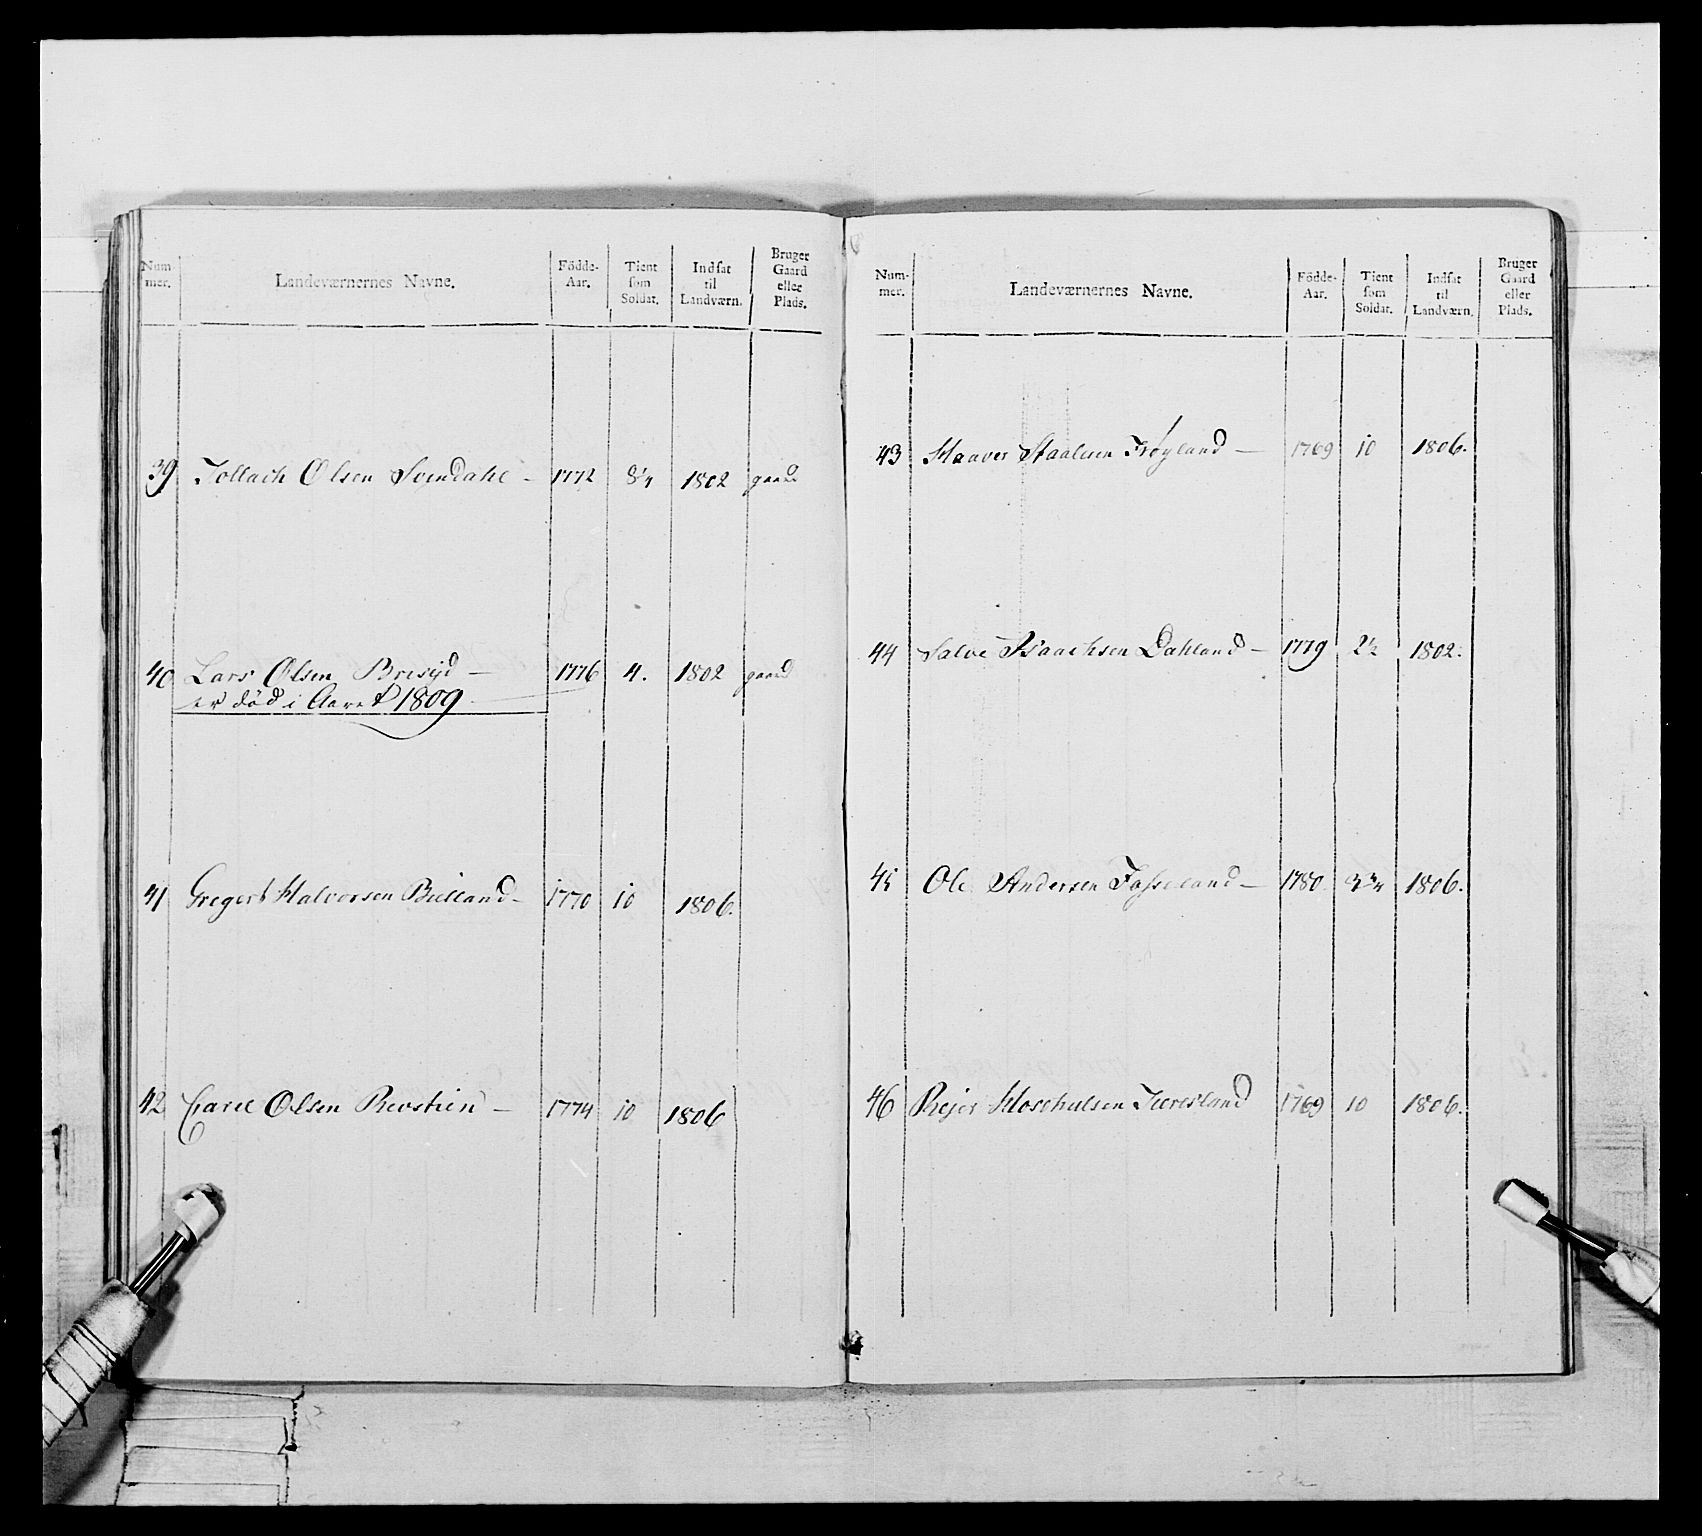 Num-
mer.
Landeværnernes Navne.
Födde-
Aar.
Tient
som
Soldat.
Indsat
til
Landværn.
Bruger
Gaard
eller
Plads.
39 Tollach Olsen Svindahl – 1772 8¼ 1802 gaard
40 Lars Olsen – 1776 4. 1802 gaard
er død i Aaret 1809
41 Gregert Halvorsen Bielland – 1770 10 1806.
42 Carel Olsen Revstien – 1774 10 1806
Num-
mer.
Landeværnernes Navne.
Födde-
Aar.
Tient
som
Soldat.
Indsat
til
Landværn.
Bruger
Gaard
eller
Plads.
43 Haaver Staalesen Frøyland – 1769 10 1806.
44 Salve Isaachsen Dahland – 1779 2½ 1802.
45 Ole Andersen Fasseland – 1780 3¾ 1806.
46 Rejer 1769 10 1806.